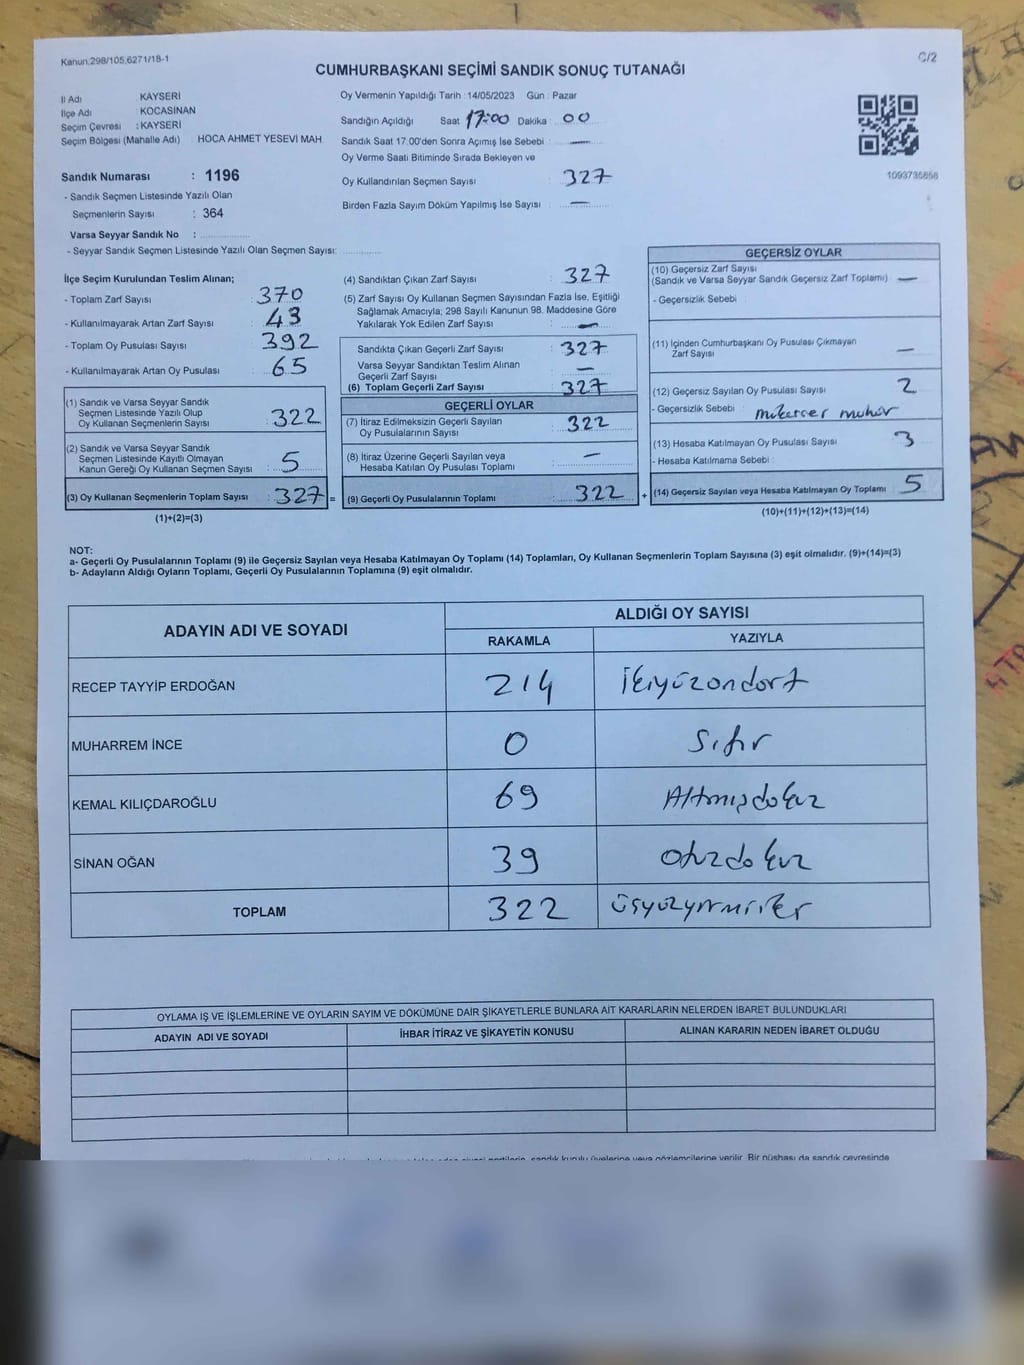 Kanun:298/105,6271/18-1
C/2
CUMHURBAŞKANI SEÇİMİ SANDIK SONUÇ TUTANAĞI
İl Adı : KAYSERİ
İlçe Adı : KOCASİNAN
Seçim Çevresi : KAYSERİ
Seçim Bölgesi (Mahalle Adı) : HOCA AHMET YESEVİ MAH.
Sandık Numarası : 1196
- Sandık Seçmen Listesinde Yazılı Olan
Seçmenlerin Sayısı : 364
Varsa Seyyar Sandık No :
- Seyyar Sandık Seçmen Listesinde Yazılı Olan Seçmen Sayısı:
Oy Vermenin Yapıldığı Tarih : 14/05/2023 Gün : Pazar
Sandığın Açıldığı Saat 17:00 Dakika : 00
Sandık Saat 17.00'den Sonra Açılmış İse Sebebi : —
Oy Verme Saati Bitiminde Sırada Bekleyen ve
Oy Kullandırılan Seçmen Sayısı : 327
Birden Fazla Sayım Döküm Yapılmış İse Sayısı : —
1093735658
İlçe Seçim Kurulundan Teslim Alınan;
- Toplam Zarf Sayısı : 370
- Kullanılmayarak Artan Zarf Sayısı : 43
- Toplam Oy Pusulası Sayısı : 392
- Kullanılmayarak Artan Oy Pusulası : 65
(1) Sandık ve Varsa Seyyar Sandık
Seçmen Listesinde Yazılı Olup
Oy Kullanan Seçmenlerin Sayısı : 322
(2) Sandık ve Varsa Seyyar Sandık
Seçmen Listesinde Kayıtlı Olmayan
Kanun Gereği Oy Kullanan Seçmen Sayısı : 5
(3) Oy Kullanan Seçmenlerin Toplam Sayısı : 327 =
(1)+(2)=(3)
(4) Sandıktan Çıkan Zarf Sayısı : 327
(5) Zarf Sayısı Oy Kullanan Seçmen Sayısından Fazla İse, Eşitliği
Sağlamak Amacıyla; 298 Sayılı Kanunun 98. Maddesine Göre
Yakılarak Yok Edilen Zarf Sayısı : —
Sandıkta Çıkan Geçerli Zarf Sayısı : 327
Varsa Seyyar Sandıktan Teslim Alınan
Geçerli Zarf Sayısı : —
(6) Toplam Geçerli Zarf Sayısı : 327
GEÇERLİ OYLAR
(7) İtiraz Edilmeksizin Geçerli Sayılan
Oy Pusulalarının Sayısı : 322
(8) İtiraz Üzerine Geçerli Sayılan veya
Hesaba Katılan Oy Pusulası Toplamı : —
(9) Geçerli Oy Pusulalarının Toplamı : 322 +
GEÇERSİZ OYLAR
(10) Geçersiz Zarf Sayısı
(Sandık ve Varsa Seyyar Sandık Geçersiz Zarf Toplamı) : —
- Geçersizlik Sebebi :
(11) İçinden Cumhurbaşkanı Oy Pusulası Çıkmayan
Zarf Sayısı : —
(12) Geçersiz Sayılan Oy Pusulası Sayısı : 2
- Geçersizlik Sebebi : mükerrer mühür
(13) Hesaba Katılmayan Oy Pusulası Sayısı : 3
- Hesaba Katılmama Sebebi :
(14) Geçersiz Sayılan veya Hesaba Katılmayan Oy Toplamı : 5
(10)+(11)+(12)+(13)=(14)
NOT:
a- Geçerli Oy Pusulalarının Toplamı (9) ile Geçersiz Sayılan veya Hesaba Katılmayan Oy Toplamı (14) Toplamları, Oy Kullanan Seçmenlerin Toplam Sayısına (3) eşit olmalıdır. (9)+(14)=(3)
b- Adayların Aldığı Oyların Toplamı, Geçerli Oy Pusulalarının Toplamına (9) eşit olmalıdır.
ADAYIN ADI VE SOYADI
ALDIĞI OY SAYISI
RAKAMLA YAZIYLA
RECEP TAYYİP ERDOĞAN 214 İkiyüzondört
MUHARREM İNCE 0 Sıfır
KEMAL KILIÇDAROĞLU 69 Altmışdokuz
SİNAN OĞAN 39 Otuzdokuz
TOPLAM 322 üçyüzyirmiiki
OYLAMA İŞ VE İŞLEMLERİNE VE OYLARIN SAYIM VE DÖKÜMÜNE DAİR ŞİKAYETLERLE BUNLARA AİT KARARLARIN NELERDEN İBARET BULUNDUKLARI
ADAYIN ADI VE SOYADI İHBAR İTİRAZ VE ŞİKAYETİN KONUSU ALINAN KARARIN NEDEN İBARET OLDUĞU
sandık kurulu üyelerine veya gözlemcilerine verilir. Bir nüshası da sandık çevresinde